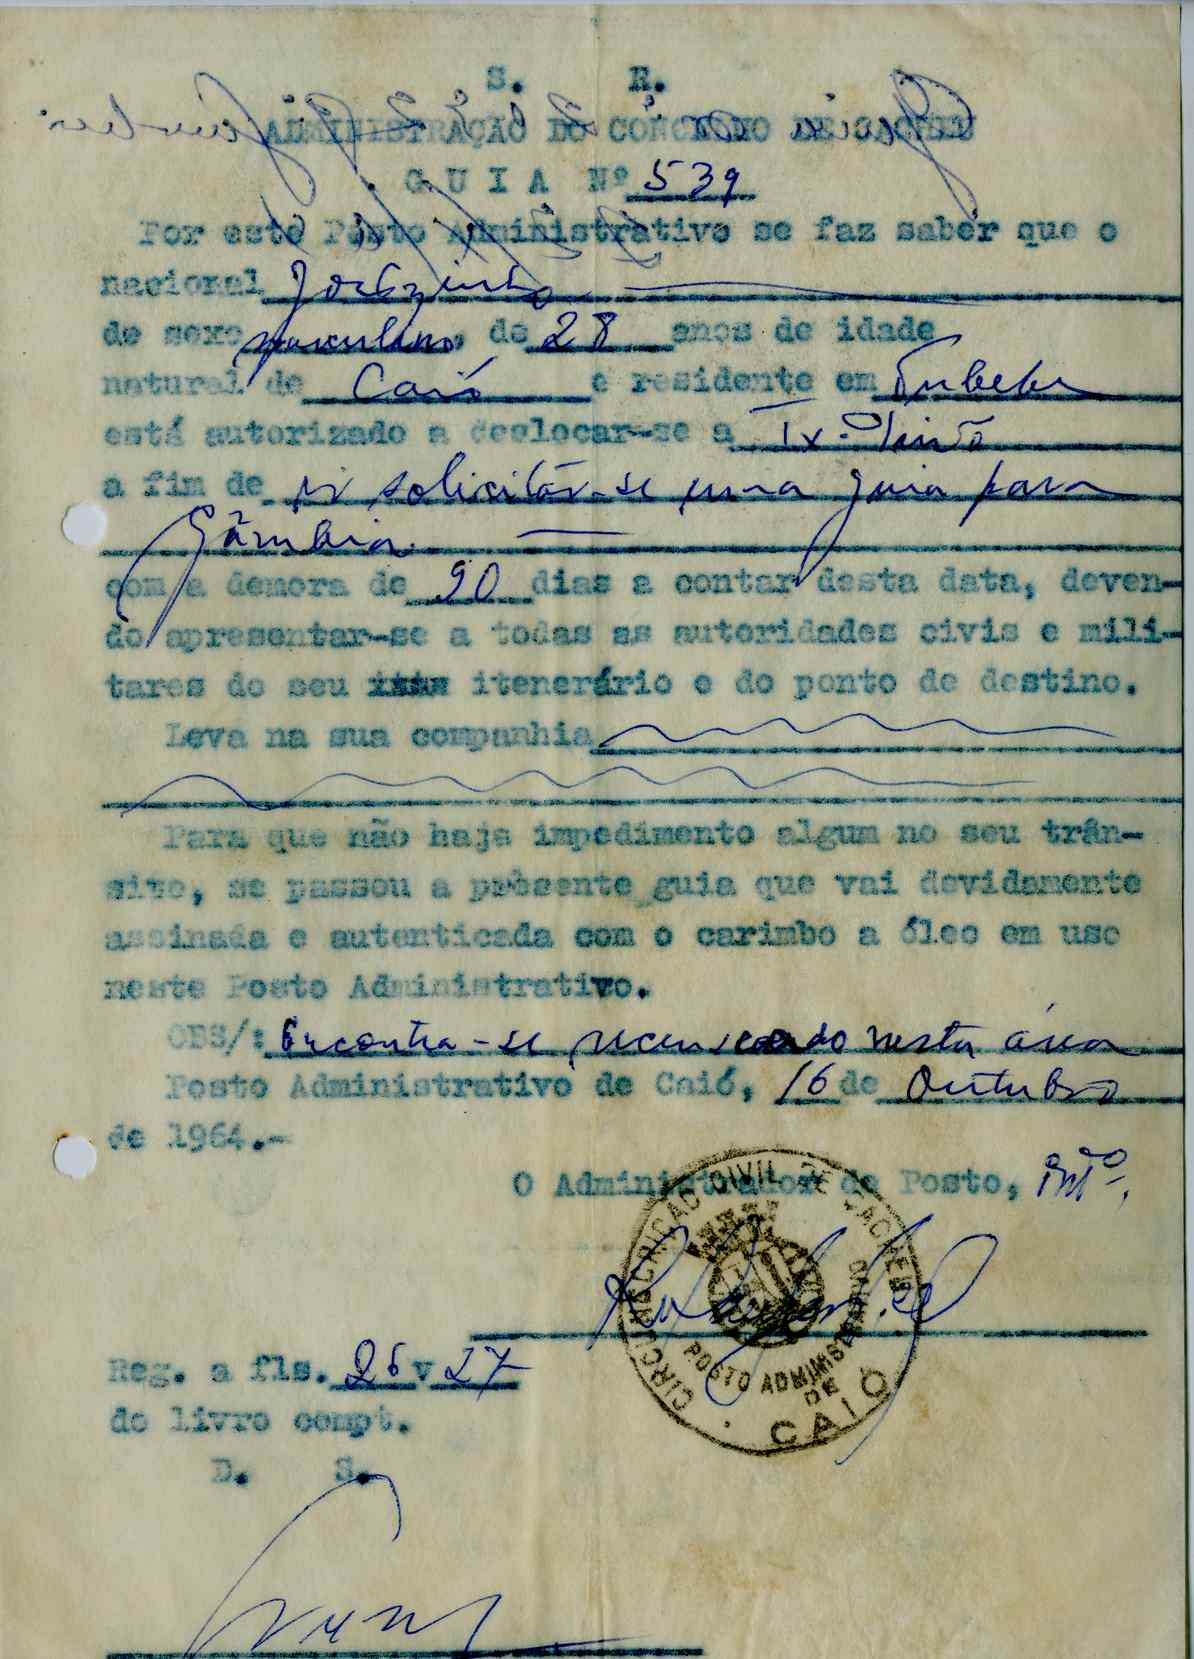 S. R.
ADMINISTRAÇÃO DO CONCELHO DE CACHEU
GUIA Nº 539
Por este Posto Administrativo se faz saber que o
nacional
de sexo masculino, de 28 anos de idade
natural de Caió e residente em
está autorizado a deslocar-se a
a fim de ir solicitar-se uma guia para
Gâmbia.
com a demora de 90 dias a contar desta data, deven-
do apresentar-se a todas as autoridades civis e mili-
tares do seu itenerário e do ponto de destino.
Leva na sua companhia
Para que não haja impedimento algum no seu trân-
sito, se passou a presente guia que vai devidamente
assinada e autenticada com o carimbo a óleo em uso
neste Posto Administrativo.
OBS/: Encontra-se recenseado nesta área
Posto Administrativo de Caió, 16 de Outubro
de 1964.-
O Administrador de Posto, intº.
CIRCUNSCRIÇÃO CIVIL DE CACHEU
POSTO ADMINISTRATIVO
DE
CAIÓ
Reg. a fls. 26 v 27
do livro compt.
D. S.